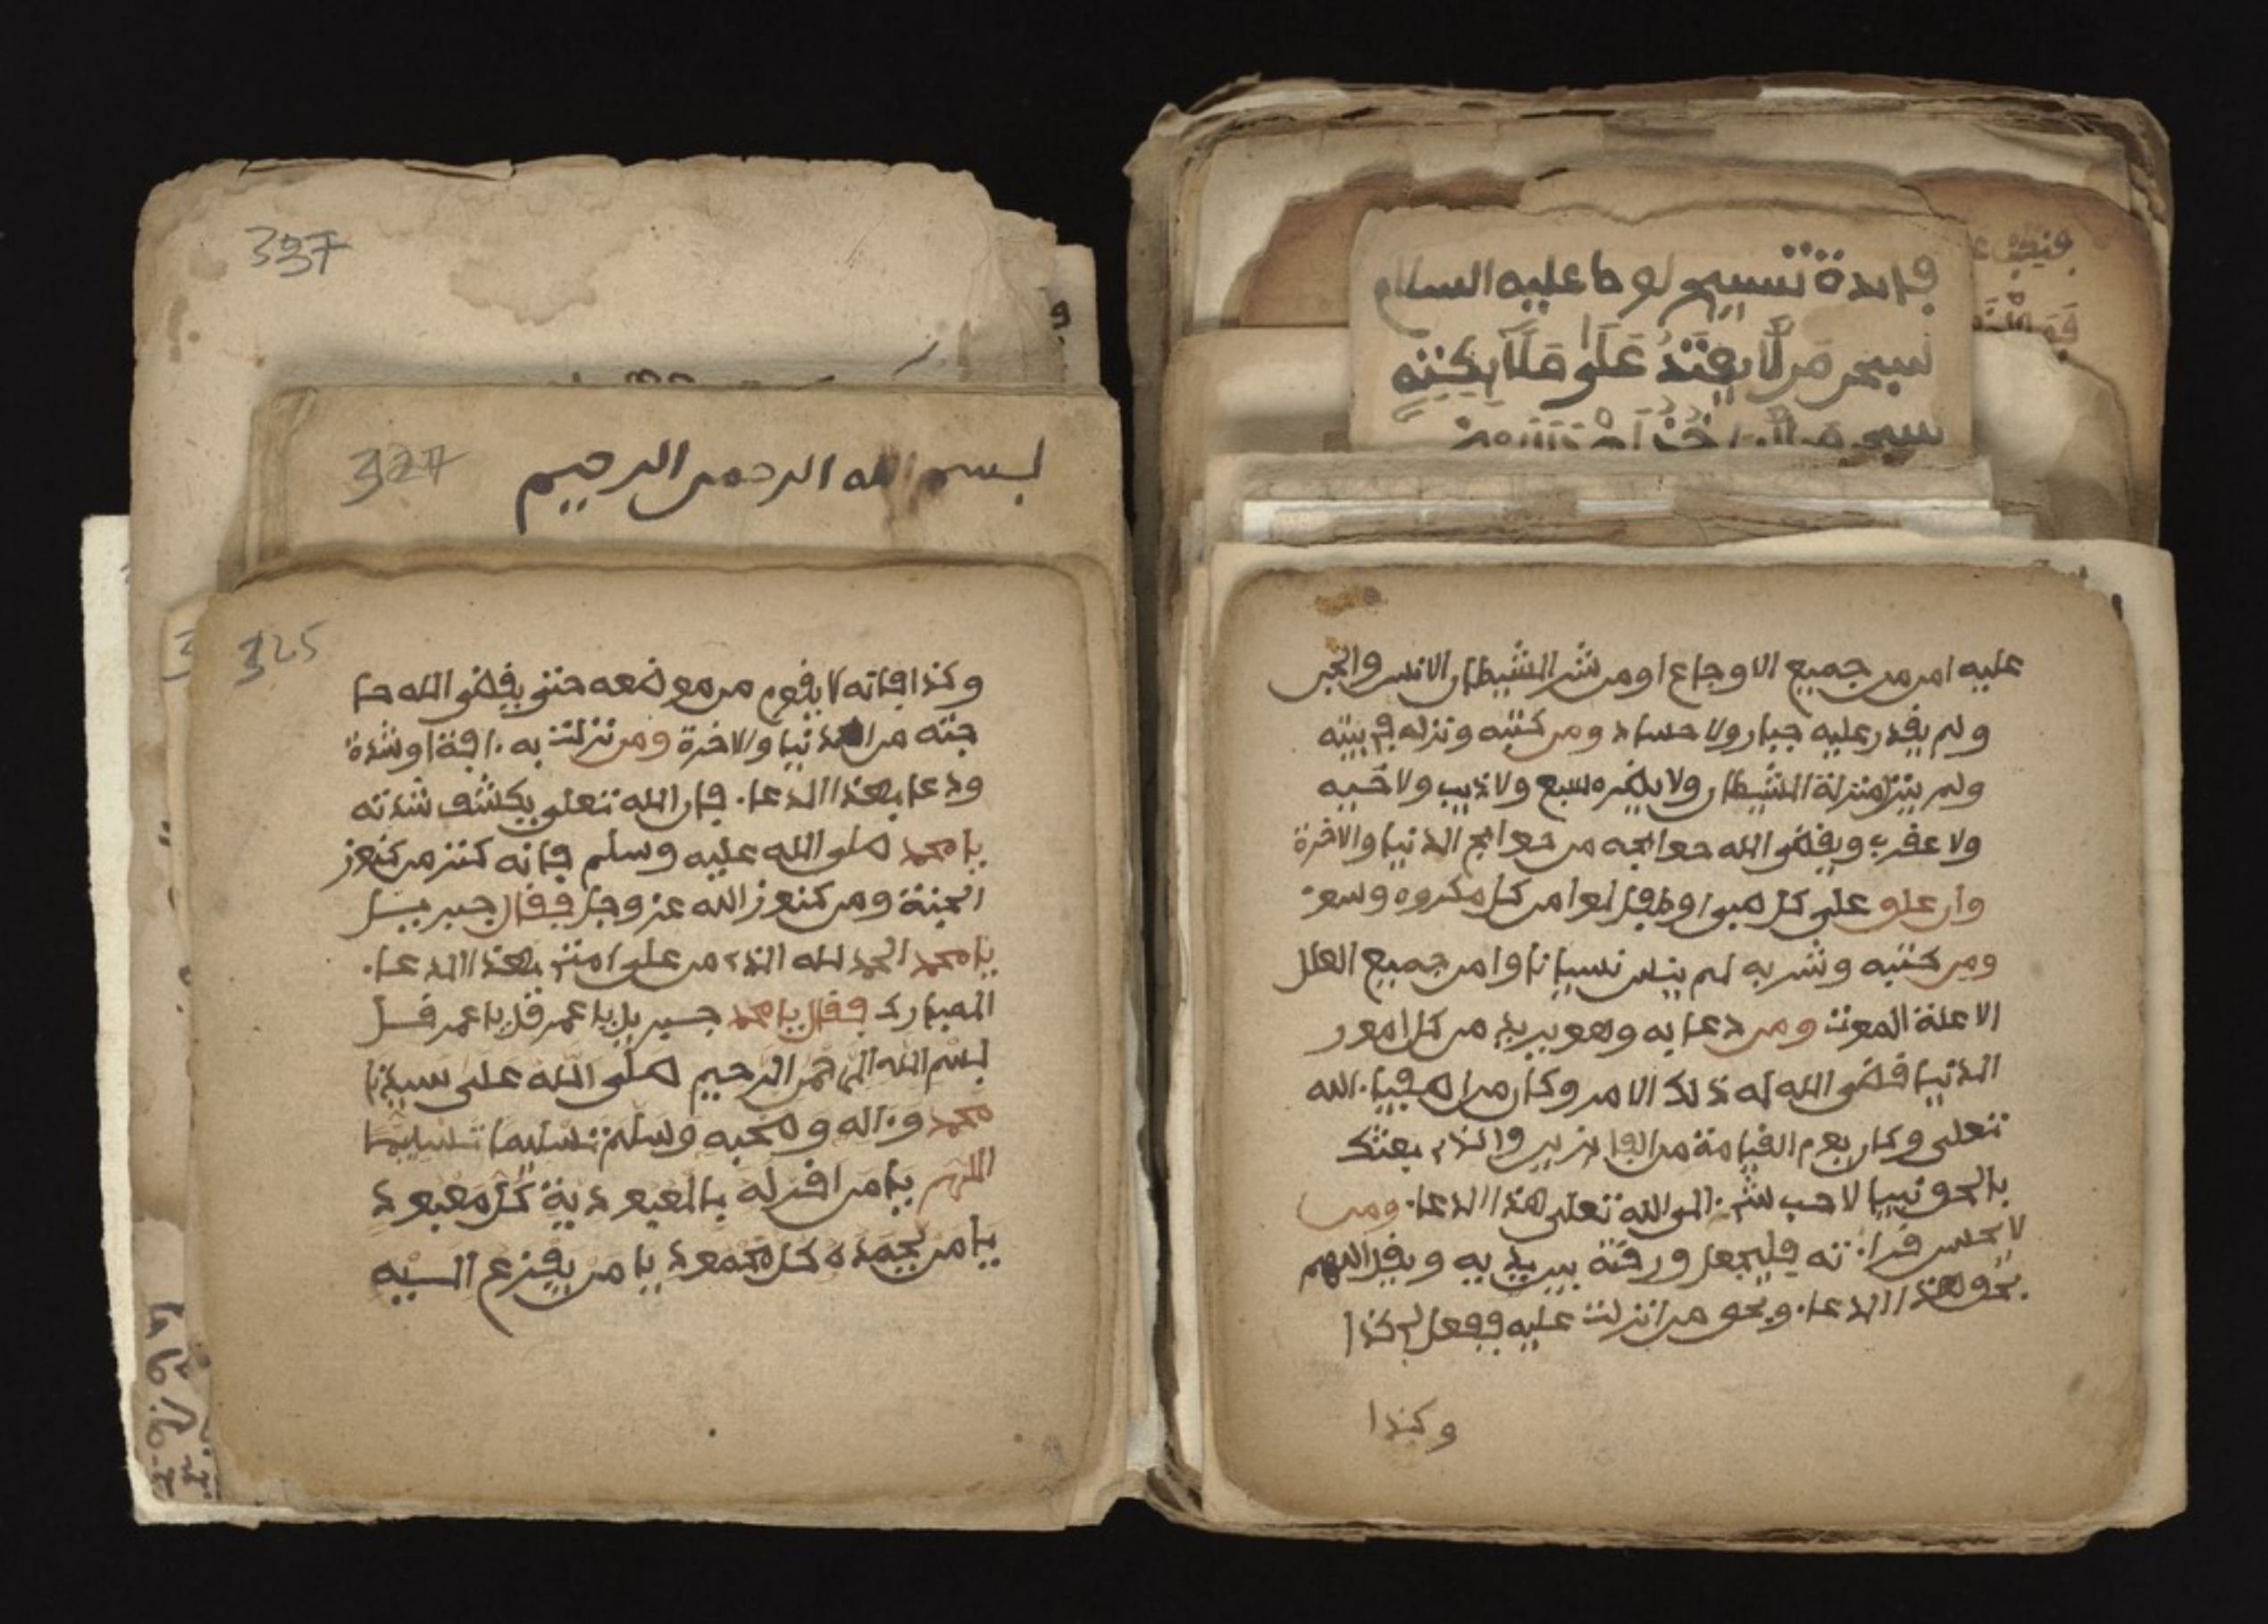 فايدة تسبيح لوط عليه السلام
سبحن من لا يعتد على
سبحن
عليه امن من جميع الاوجاع اومن شر الشيطان الانس والجن
ولم يقدر عليه جبار ولا حساد ومن كتبه ونزله في بيته
ولم ينزل منزلة الشيطان ولا يضره سبع ولا ذيب ولا حيه
ولا عقرب ويقضى الله حوائجه من حوائج الدنيا والاخرة
وان علو على كل صبي او طفل امن كل مكروه وسو
ومن كتبه وشربه لم ينس نسيانا وامن جميع العلل
الا علة الموت ومن دعا به وهو يريد من كل امور
الدنيا قضى الله له ذلك الامر وكان من اصفياء الله
تعلى وكان يوم القيامة من الفايزين والذي بعثك
بالحق نبيا لاحب شيء الى الله تعلى هذا الدعاء ومن
لا يحسن قراءته فليجعل ورقته بين يديه ويقل اللهم
بحق هذا الدعاء وبحق من انزلت عليه ففعل لي كذا
وكذا
337
327
بسم الله الرحمن الرحيم
325
وكذا فانه لا يقوم من موضعه حتى يقضى الله حا
جته من الدنيا والاخرة ومن نزلت به افة او شدة
ودعا بهذا الدعاء فان الله تعلى يكشف شدته
يا محمد صلى الله عليه وسلم فانه كنز من كنوز
الجنة ومن كنوز الله عز وجل فقال جبريل
يا محمد الحمد لله الذي من على امتي بهذا الدعاء
المبارك فقال يا محمد جبريل يا عمر قل يا عمر قل
بسم الله الرحمن الرحيم صلى الله على سيدنا
محمد وءاله وصحبه وسلم تسليما تسليما
اللهم يا من اقر له بالعبودية كل معبود
يا من يحمده كل محمود يا من يفزع اليه